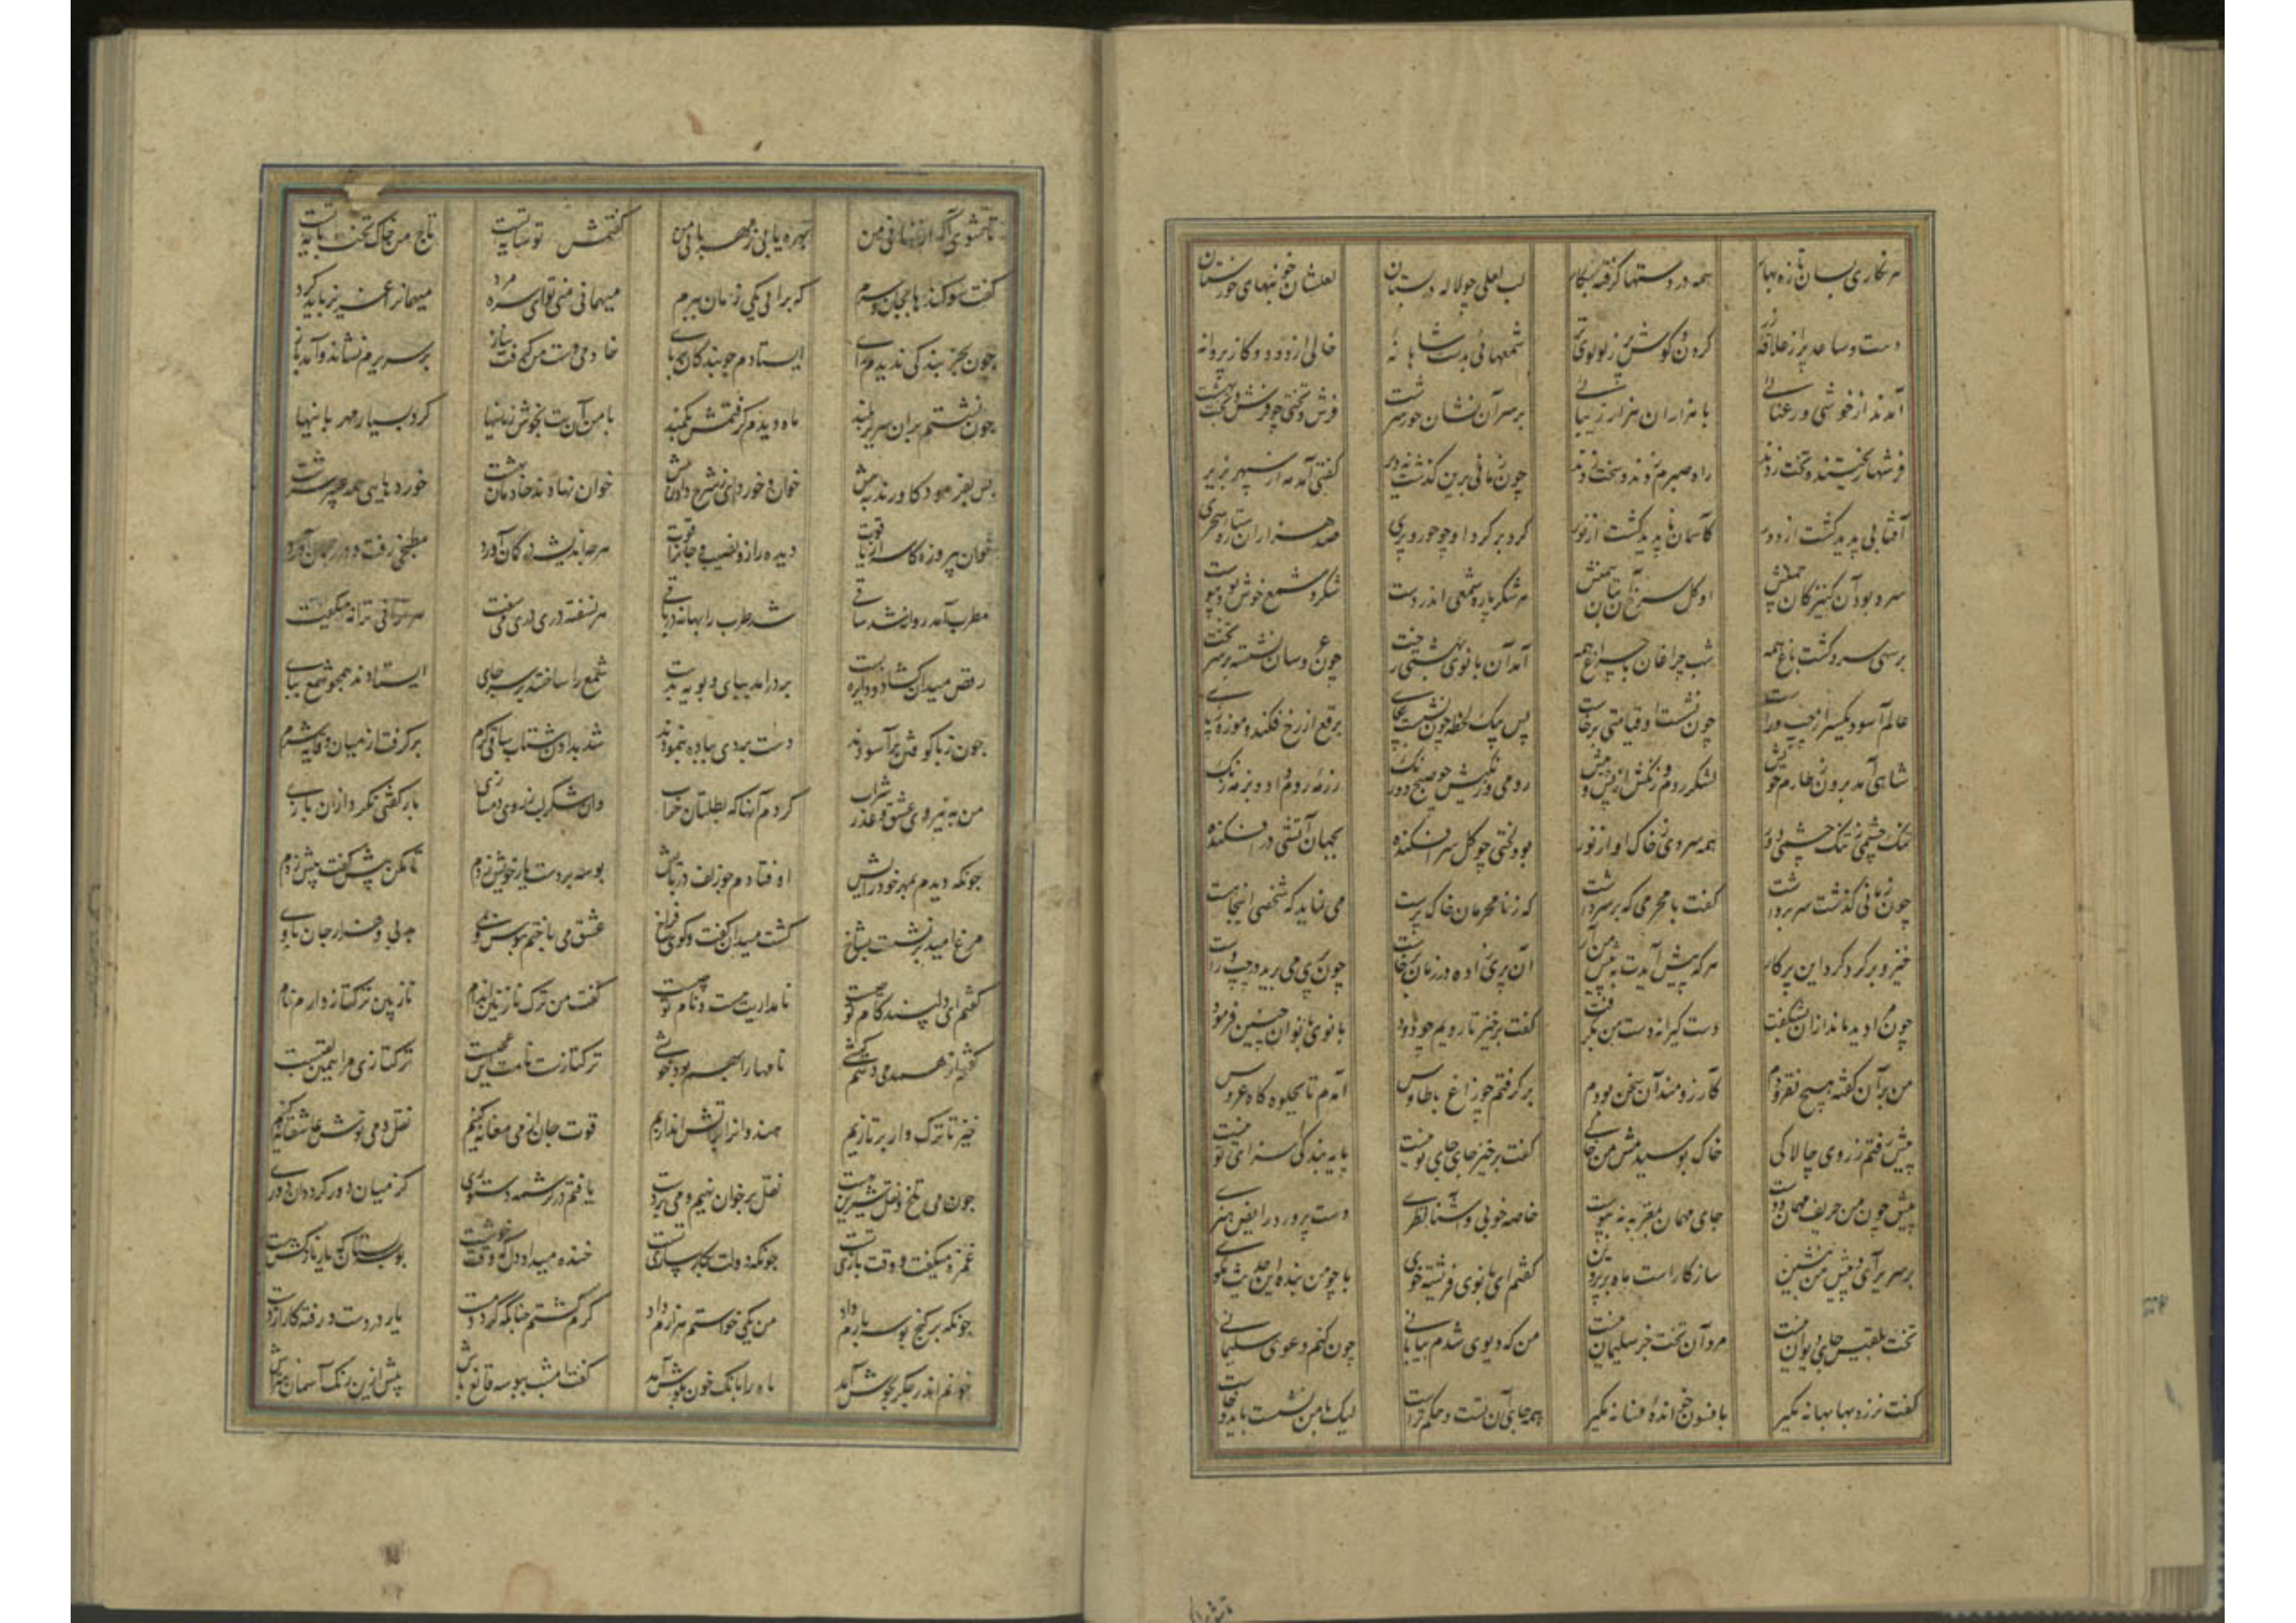 هر نکاری بسان تازه بهار همه در دستها کرفته نکار لب لعلی چو لاله در بستان لعلشان خونبهای خوزستان
دست و ساعد پر از علاقه زر کردن و کوش پر ز لولوی تر شمعهائی بدست شاهانه خالی از دود و کاز و پروانه
آمدند از خوشی و رعنائی با هزاران هزار زیبائی بر سر آن بتان حور سرشت فرش و تختی چو فرش و تخت بهشت
فرشها ریختند و تخت زدند راه صبرم زدند و سخت زدند چون زمانی برین کذشت نه دیر کفتی آمد مه از سپهر بزیر
آفتابی پدید کشت از دور کاسمان ناپدید کشت از نور کرد بر کرد او چو حور و پری صد هزاران ستاره سحری
سرو بود آن کنیزکان چمنش او کل سرخ آن بتان سمنش هر شکر پاره شمعی اندر دست شکر و شمع خوش بود پیوست
پر سهی سرو کشت باغ همه شب چراغان با چراغ همه آمد آن بانوی بهشتی رخت چون عروسان نشسته بر سر تخت
عالم آسوده یکسر از چپ و راست چون نشست او قیامتی برخاست پس بیک لحظه چون نشست بجای برقع از رخ فکند و موزه ز پای
شاهی آمد برون ز طارم خویش لشکر روم و زنکش از پس و پیش رومی و زنکیش چو صبح دو رنک رزمه روم داد و بزمه زنک
تنک چشمی ز تنک چشمی دور همه سروی ز خاک او از نور بود لختی چو کل سر افکنده بجهان آتشی در افکنده
چون زمانی کذشت سر برداشت کفت با محرمی که بر سر داشت که ز نامحرمان خاک پرست می نماید که شخصی اینجا هست
خیز و بر کرد کرد این پرکار هر که پیش آیدت به پیش من آر آن پری زاده در زمان برخاست چون پری می پرید در چپ و راست
چون مرا دید ماند از آن شکفت دست کیرانه دست من بکرفت کفت برخیز تا رویم چو دود بانوی بانوان چنین فرمود
من بر آن کفته هیچ نفزودم کارزومند آن سخن بودم بر کرفتم چو زاغ با طاوس آمدم تا بجلوه کاه عروس
پیش رفتم ز روی چالاکی خاک بوسیدمش من خاکی کفت برخیز جای جای تو نیست پایه بندکی سزای تو نیست
پیش چون من حریف مهمان دوست جای مهمان مغز به نه پوست خاصه خوبی و آشنا نظری دست پرورد رایض هنری
بر سریر آی و پیش من بنشین سازکار است ماه با پروین کفتم ای بانوی فرشته خوی با چو من بنده این حدیث مکوی
تخت بلقیس جای دیوان نیست مرد آن تخت جز سلیمان نیست من که دیوی شدم بیابانی چون کنم دعوی سلیمانی
کفت نرزد بها بهانه مکیر با فسون خوانده افسانه مکیر همه جای آن تست و حکم تراست لیک با من نشست باید و خاست
تا شوی آکه از نهانی من بهره یابی ز مهربانی من کفتمش سایه تو تست تاج من خاک تخت پایه تست
کفت سوکندها بجان و سرم که برآیی یکی زمان ببرم میهمان منی تو ای سره مرد میهمانرا عزیز باید کرد
چون بجز بندکی ندیدم رای ایستادم چو بندکان بپای خادمی دست من کرفت بناز بر سریرم نشاند و آمد باز
چون نشستم بران سریر بلند ماه دیدم کرفتمش بکمند با من آن بت بخوش زبانیها کرد بسیار مهربانیها
پس بفرمود کاورند به پیش خوان و خوردی ز شرح دادن بیش خوان نهادند خادمان بهشت خوردهایی همه عبیر سرشت
خوان پیروزه کاسه از یاقوت دیده را زو نصیب و جانرا قوت هر چه اندیشه در کمان آورد مطبخی رفت و در میان آورد
مطرب آمد روانه شد ساقی شد طرب را بهانه در باقی هر نسفته دری دری می سفت هر ترانی ترانه میکفت
رقص میدان کشاد و دایره بست پر درامد بپای و پویه بدست شمع را ساختند بر سر جای ایستادند همچو شمع بپای
چون ز پا کوفتن بر آسودند دست بردی بباده بنمودند شد بدادن شتاب ساقی کرم بر کرفت از میان وقایه شرم
من به نیروی عشق و عذر شراب کردم آنها که رطلیان خراب وان شکر لب ز روی دمسازی باز کفتی نکرد از آن بازی
چونکه دیدم بمهر خود رایش اوفتادم چو زلف در پایش بوسه بر دست یار خویش زدم تا مکن بیش کفت بیش زدم
مرغ امید بر نشست بشاخ کشت میدان کفت و کوی فراخ عشق می باختم ببوس و می بدلی و هزار جان با وی
کفتم ای دلپسند کام تو چیست نامداریت هست نام تو چیست کفت من ترک نازنین اندام نازنین ترکتاز دارم نام
کفتم از همدمی و هم کیشی نامها را بهم بود خویشی ترکتازت نامت این عجبست ترکتازی مرا همین لقبست
خیز تا ترک وار در تازیم هندوانرا در آتش اندازیم قوت جان از می مغانه کنیم نقل و می نوش عاشقانه کنیم
چون می تلخ و نقل شیرین هست نقل بر خوان نهیم و می بر دست یافتم در کرشمه دستوری کز میان دور کرد آن دوری
غمزه میکفت وقت بازی تست جونکه دولت بکار سازی تست خنده میداد دل که وقت خوشست بوسه بستان که یار نازکشست
چونکه بر کنج بوسه بارم داد من یکی خواستم هزارم داد کرم کشتم چنانکه کردد مست یار در دست و رفته کار از دست
خونم اندر جکر بجوش آمد ماه را بانک خون بکوش آمد کفت امشب ببوسه قانع باش بیش ازین رنک آسمان متراش